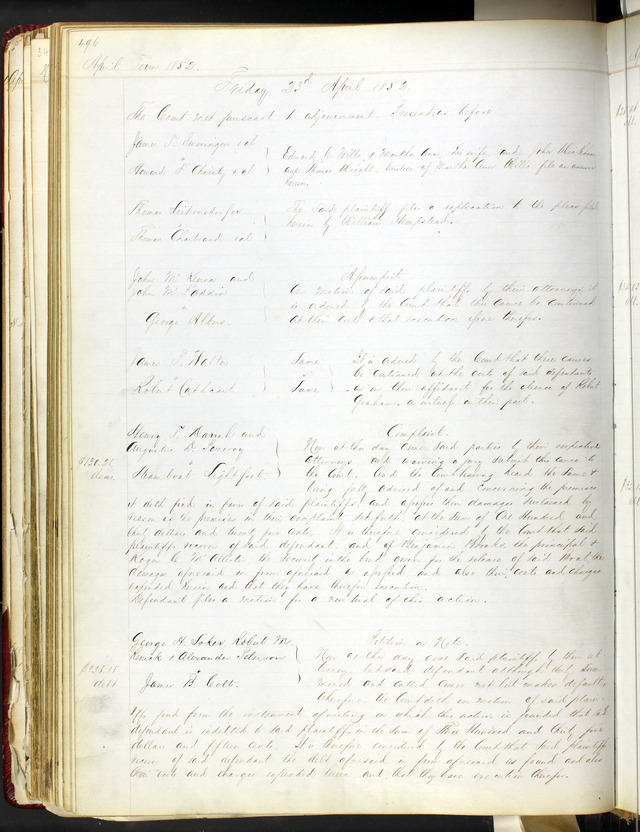 496
April Term 1852.
Friday 23rd April 1852.
The Court met pursuant to adjournment. Present as before.
James T. et al
vs
Howard F. Christy et al
Edward G. Wills & Martha Ann his wife and John
and Thomas Wright, of Martha Ann Wills file an answer
herein.
Thomas
vs
Thomas Chartrand et al
The said plaintiff files a replication to the pleas filed
herein by William Hempstead.
John and
John
vs
George Albers.
Assumpsit
On motion of said plaintiffs by their attorneys it
is ordered by the Court that this cause be continued
at their costs & that execution issue therefor.
James P. Walter
vs
Robert Cathcart
Same
vs
Same
It is ordered by the Court that these causes
be continued at the costs of said defendants
on their affidavit for the absence of Robert
Graham, a witness on their part.
Henry T. and
Augustus D.
vs
Steamboat Lightfoot.
$130.25
Complaint.
Now at this day come said parties by their respective
attorneys and waiving a jury submit this cause to
the Court, and the Court having heard the same &
being fully advised of and concerning the premises
doth find in favor of said plaintiffs and assess their damages sustained by
reason of the premises in their complaint set forth at the sum of One Hundred and
thirty dollars and twenty five cents. It is therefore considered by the Court that said
plaintiffs recover of said defendant and of Benjamin the principal &
Roger the security in the bond given for the release of said Boat the
damages aforesaid in form aforesaid so assessed and also their costs and charges
expended herein and that they have therefor execution.
Defendant files a motion for a new trial of this action.
George H. Robert M.
& Alexander Peterson
vs
James B. Colt.
$335.15
debt
Petition on Note.
Now at this day come said plaintiffs by their at-
torney but said defendant although duly sum-
moned and called comes not but makes default,
wherefore the Court doth on motion of said plain-
tiffs find from the instrument of writing on which this action is founded that said
defendant is indebted to said plaintiffs in the sum of Three Hundred and thirty five
dollars and fifteen cents. It is therefore considered by the Court that said plaintiffs
recover of said defendant the debt aforesaid in form aforesaid so found and also
their costs and charges expended herein and that they have execution therefor.